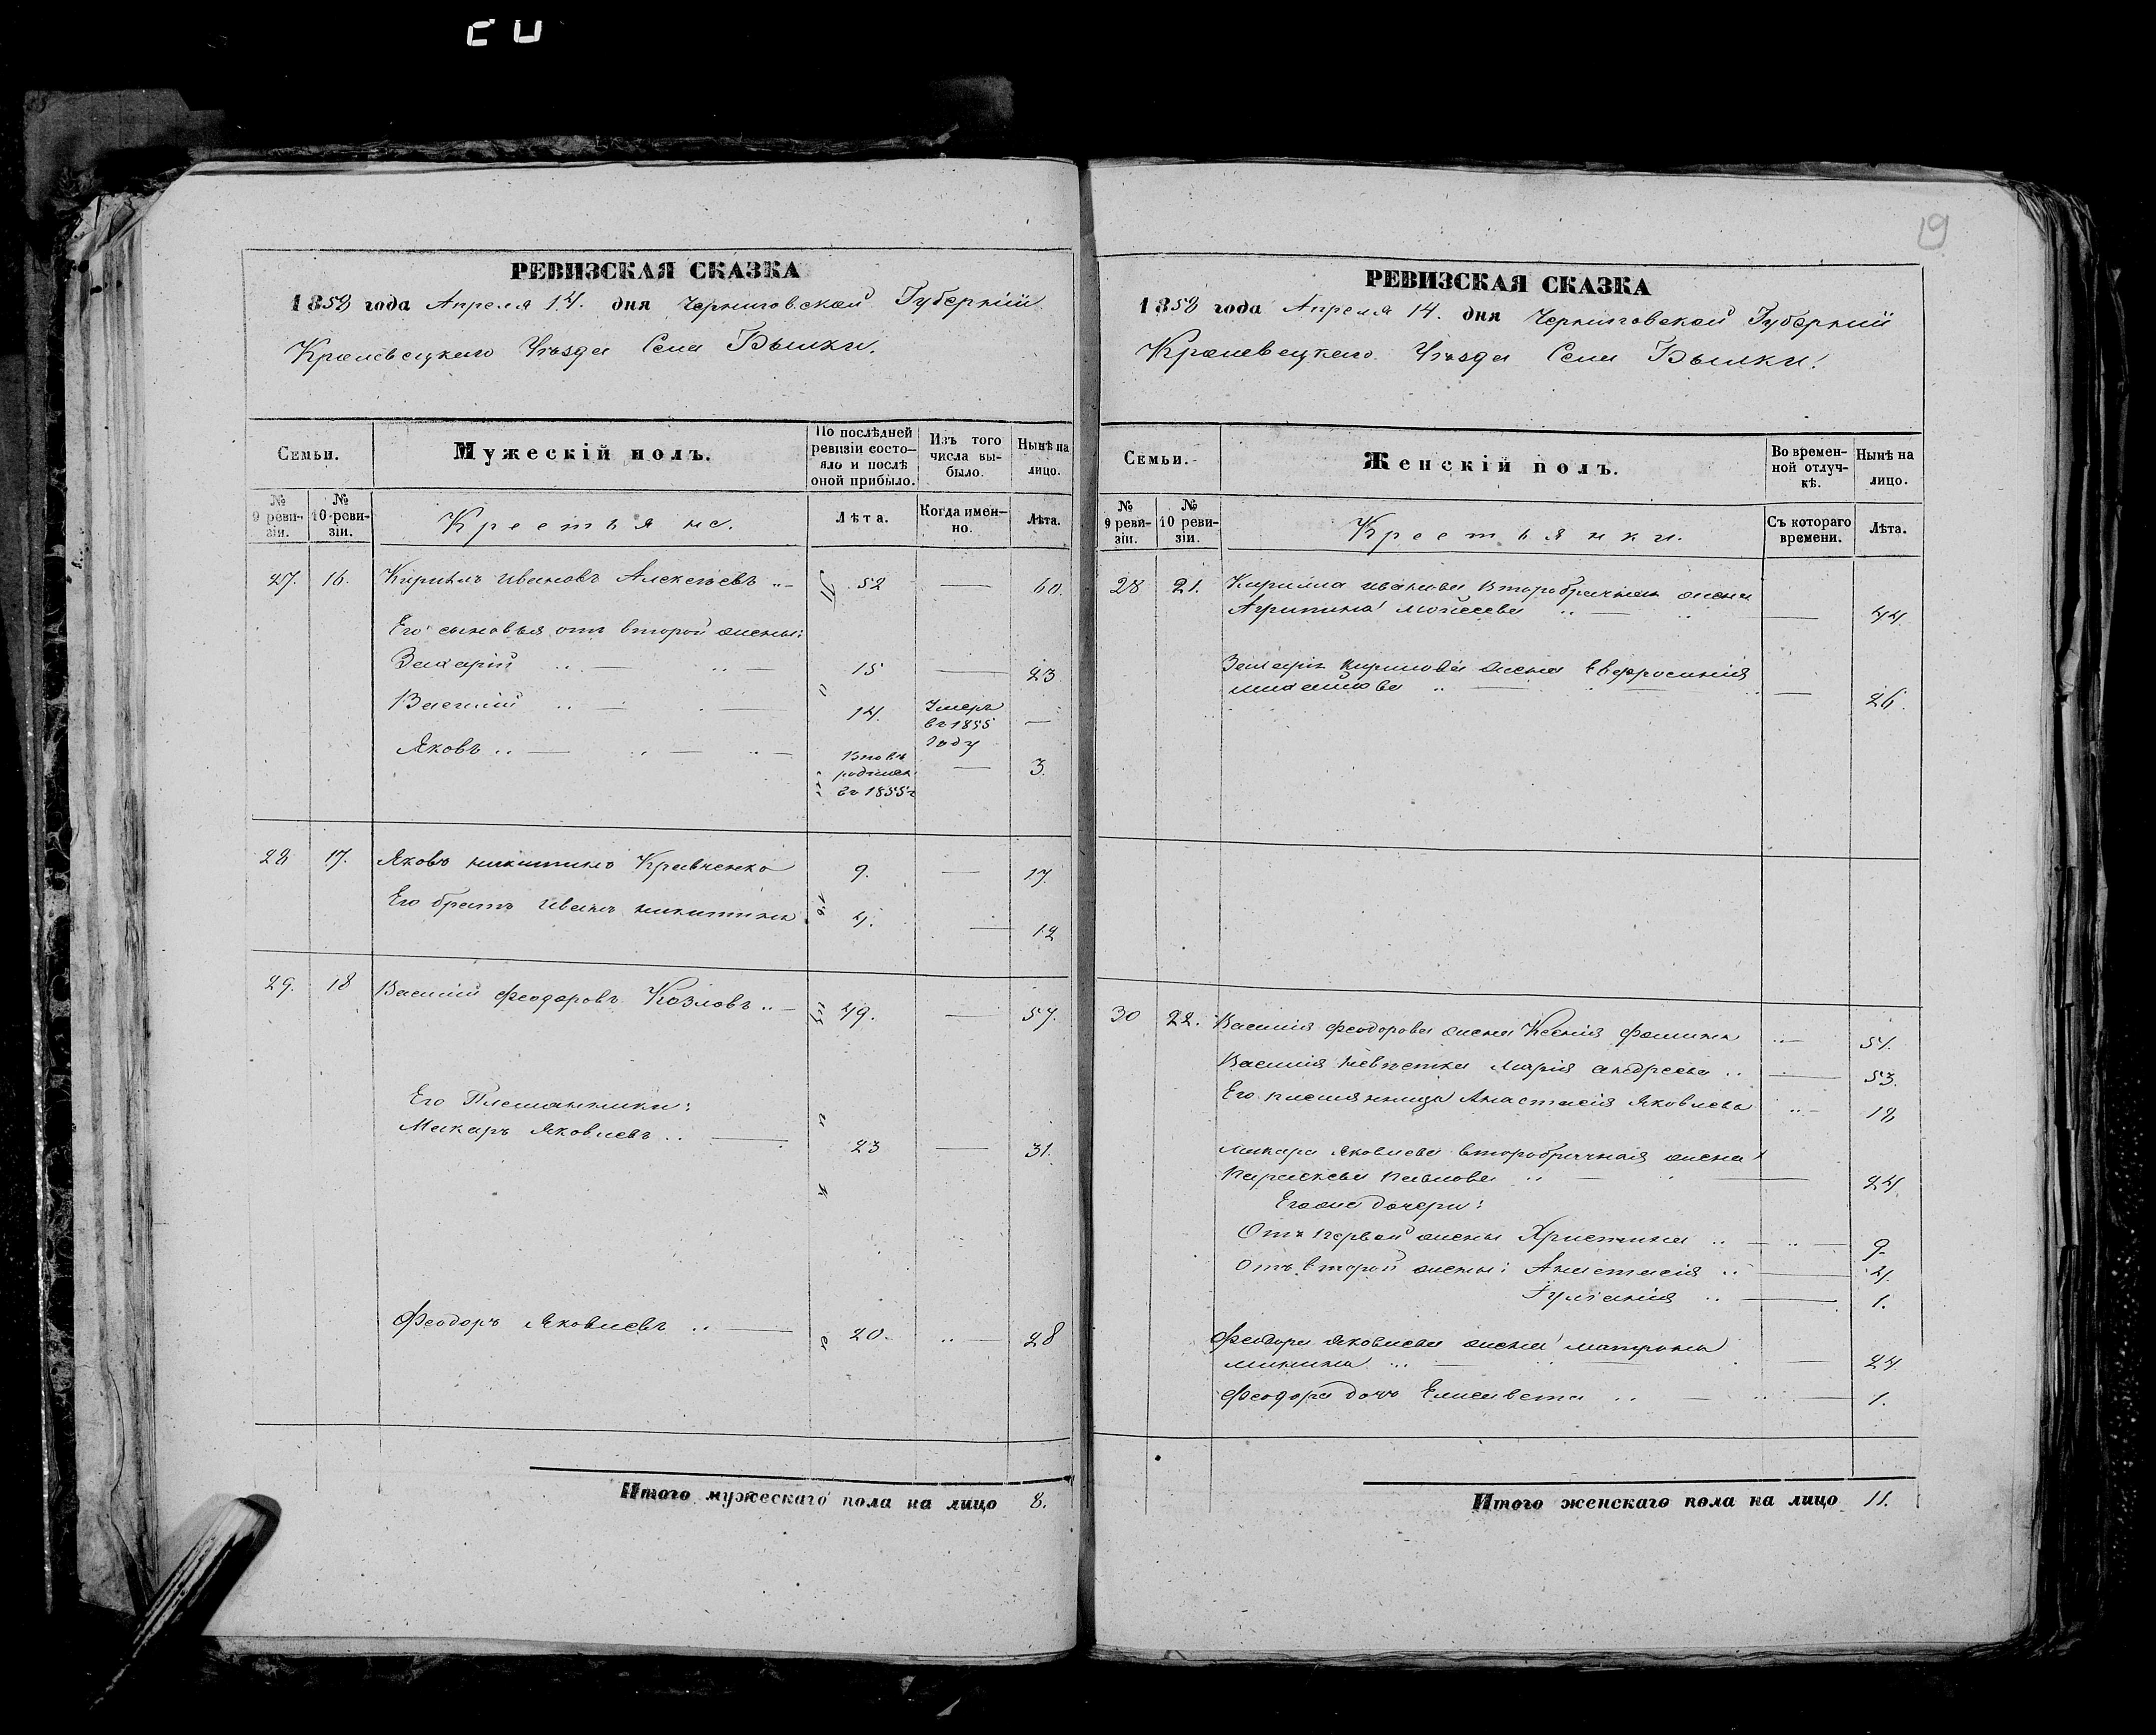 19
РЕВИЗСКАЯ СКАЗКА
1858 года Апреля 14. дня Черниговской Губерніи
Кролевецкаго Уѣзда Села Быки.
Семьи.
Мужескій полъ.
По послѣдней ревизіи состояло и послѣ оной прибыло.
Изъ того числа выбыло.
Нынѣ на лицо.
№ 9 ревизіи.
№ 10 ревизіи.
Крестьяне.
Лѣта.
Когда именно.
Лѣта.
27. 16. Кирилъ Ивановъ Алексѣевъ 52 — 60.
Его сыновья отъ второй жены:
Захарій 15 — 23
Василій 14. Умеръ въ 1855 году —
Яковъ Вновь родился въ 1855 г — 3.
28 17. Яковъ Никитинъ Кравченко 9. — 17.
Его братъ Иванъ Никитинъ 4. — 12
29. 18 Василій Феодоровъ Козловъ 49. — 57.
Его Племянники:
Макаръ Яковлевъ 23 — 31.
Феодоръ Яковлевъ 20. — 28
Итого мужескаго пола на лицо 8.
РЕВИЗСКАЯ СКАЗКА
1858 года Апреля 14. дня Черниговской Губерніи
Кролевецкаго Уѣзда Села Быки.
Семьи.
Женскій полъ.
Во временной отлучкѣ.
Нынѣ на лицо.
№ 9 ревизіи.
№ 10 ревизіи.
Крестьянки.
Съ котораго времени.
Лѣта.
28 21. Кирила Иванова второбрачная жена
Агрипина Мойсеева — 44
Захарія Кирилова жена Евфросинія
— 26.
30 22. Василія Феодорова жена Ксенія Фомина — 54.
Василія невѣстка Марія Андреева — 53.
Его племянница Анастасія Яковлева — 18
Макара Яковлева второбрачная жена
Параскева Павлова — 24.
Егоже дочери:
Отъ первой жены Христина — 9.
Отъ второй жены: Анастасія — 4.
Іуліанія — 1.
Феодора Яковлева жена Матрона
— 24.
Феодора дочь Елисавета — 1.
Итого женскаго пола на лицо 11.